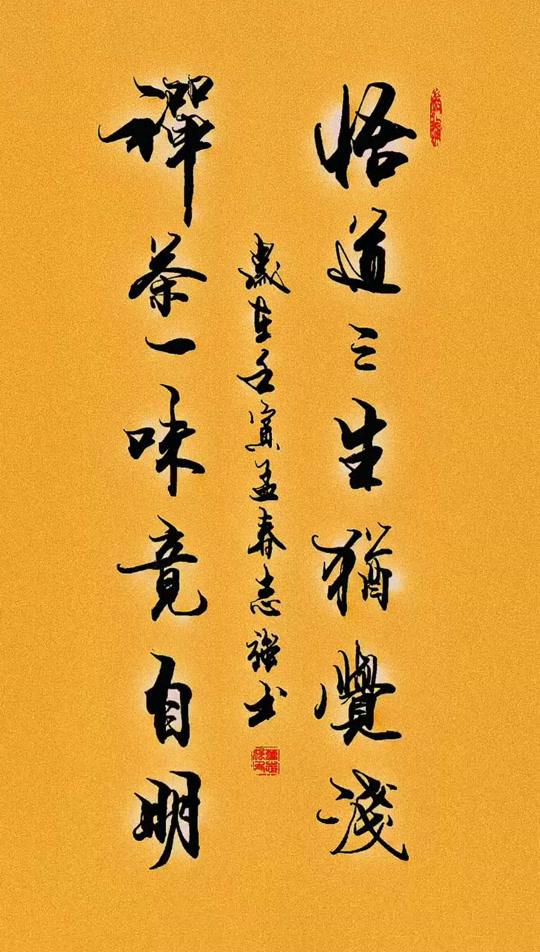 悟道三生猶覺淺
歲在壬寅孟春志強书
禪茶一味竟自明